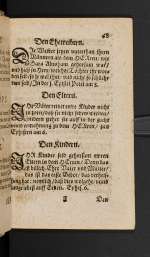 48
Den Eheweibern.
Die Weiber seyen unterthan ihren
Männern als dem HErrn, wie
Sara Abraham gehorsam war/
und hieß ihn Herr/ welcher Töchter ihr worden
seyd/ so ihr wol thut/ und nicht so schüchtern
seyd/ In der 1. Epistel Petri am 3.
Den Eltern.
Ihr Väter reitzet eure Kinder nicht
zu zorn/ daß sie nicht scheu werden/
sondern ziehet sie auff in der zucht
und vermahnung zu dem HErrn/ zun
Ephesern am 6.
Den Kindern.
IHR Kinder seid gehorsam euren
Eltern in dem HErrn/ Denn das
ist billich. Ehre Vater und Mutter/
das ist das erste Gebot/ das verheissung
hat/ nemlich/ daß dirs wolgehe/ und
lange lebest auff Erden. Ephes. 6.
Den